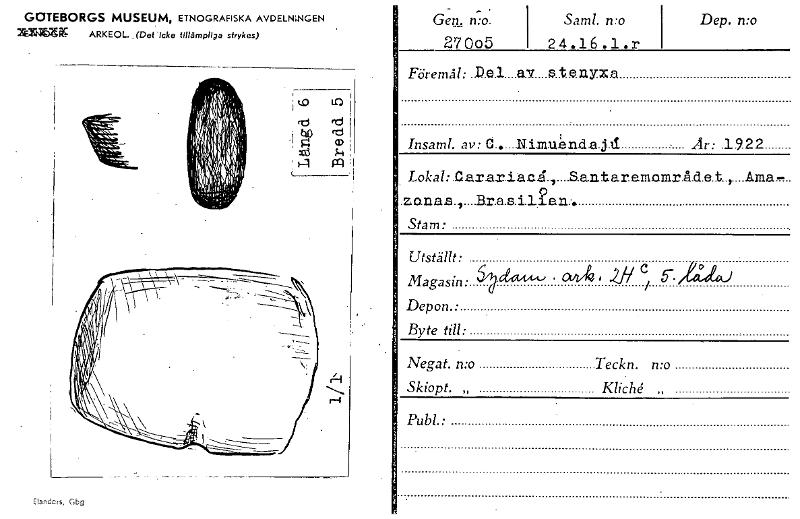 GÖTEBORGS MUSEUM, ETNOGRAFISKA AVDELNINGEN
ARKEOL. (Det icke tillämpliga strykes)
Längd 6
Bredd 5
1/1
Elanders, Gbg
Gen. n:o. Saml. n:o Dep. n:o
27005 24.16.1.r
Föremål: Del av stenyxa
Insaml. av: C. Nimuendajú År: 1922
Lokal: Carariacá, Santaremområdet, Ama-
zonas, Brasilien.
Stam:
Utställt:
Magasin: Sydam. ark. 2H c, 5. låda
Depon.:
Byte till:
Negat. n:o Teckn. n:o
Skiopt. „ Kliché „
Publ.: